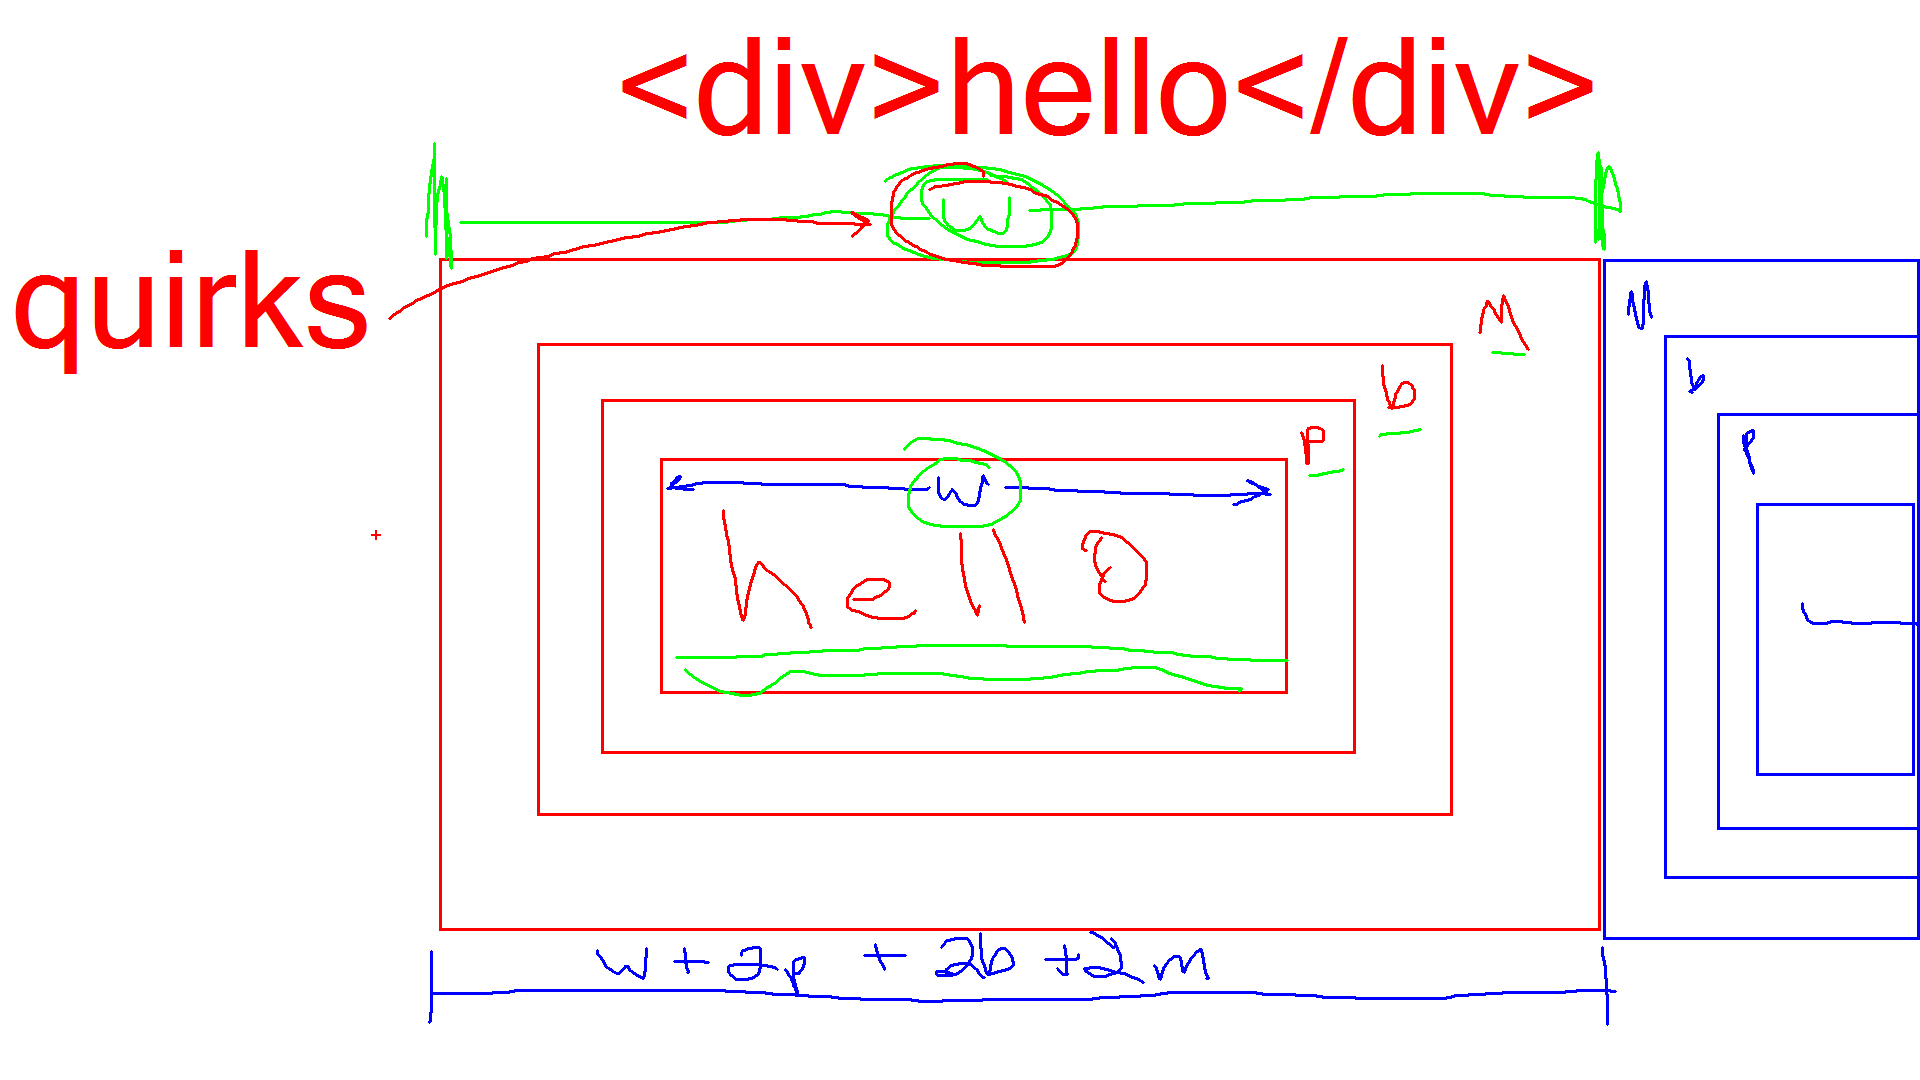 <div>hello</div>
W
quirks
M
M
b
b
p
p
W
hello
w + 2p + 2b + 2m